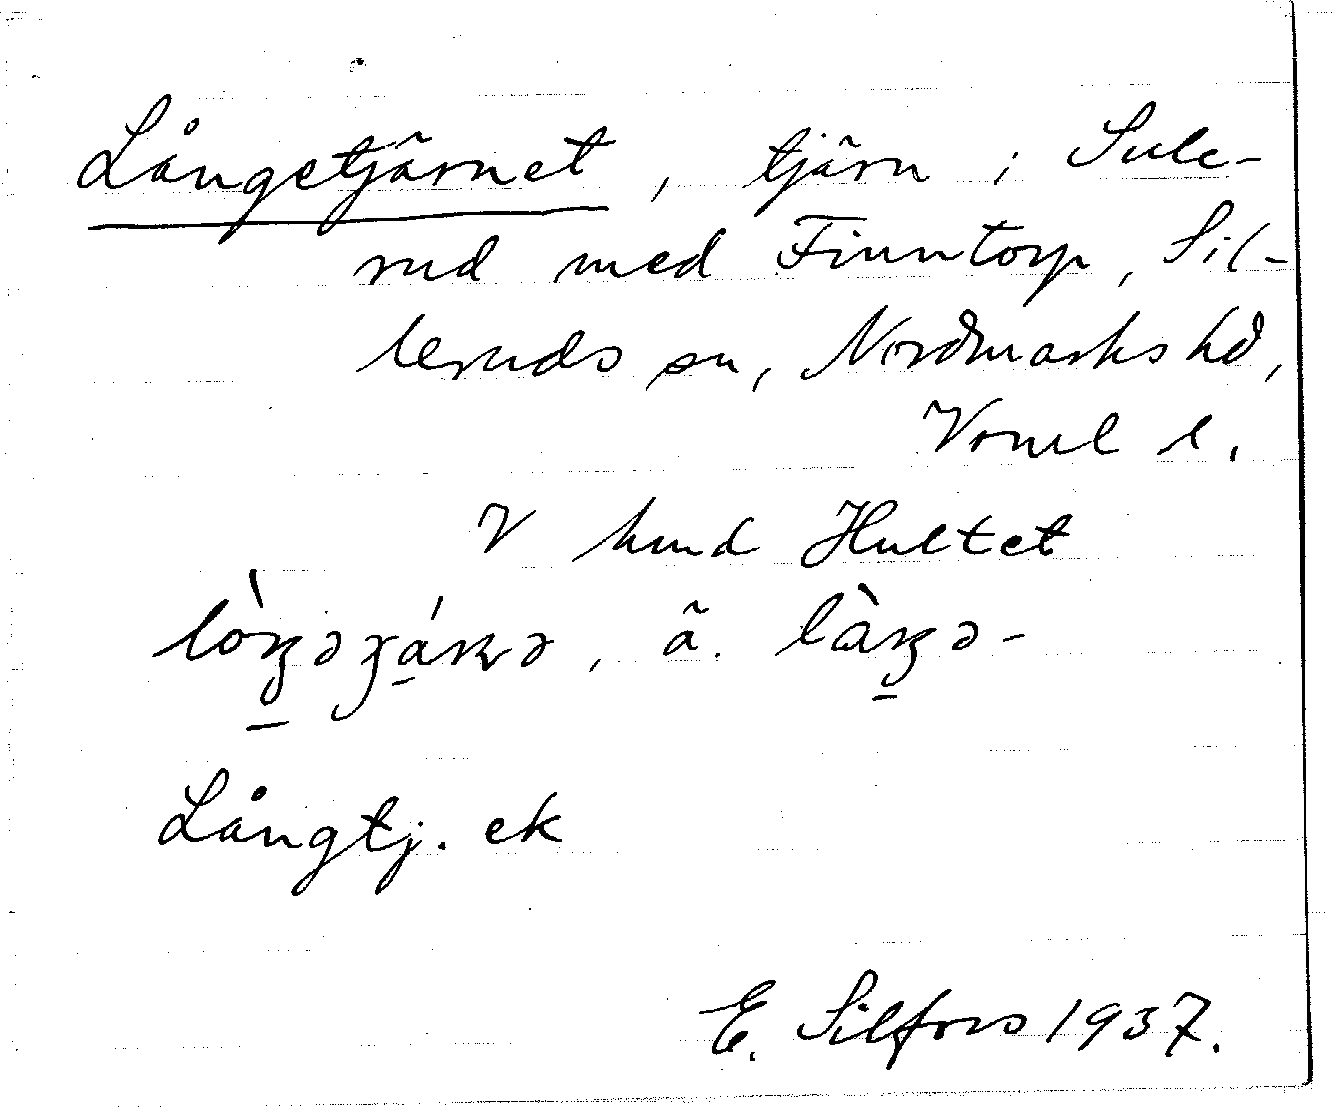 Långetjärnet, tjärn i Sule-
rud med Finntorp, Sil-
leruds sn, Nordmarks hd,
Vrml l.
V hmd Hultet
ä.
Långtj. ek
E. Silfors 1937.